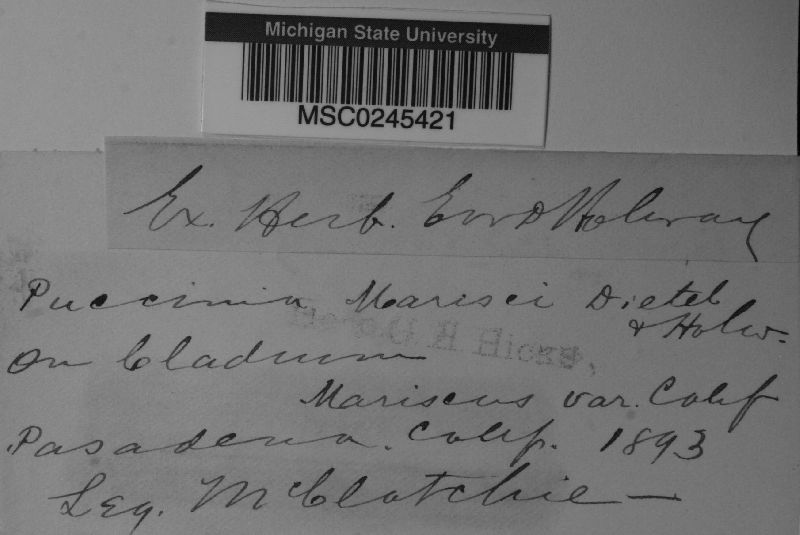 Michigan State University
MSC0245421
Ex. Herb. EWD Holway
Puccinia Marisci Dietel
& Holw.
on Cladium
Mariscus var. Calif
Pasadena. Calif. 1893
Leg. McClatchie —